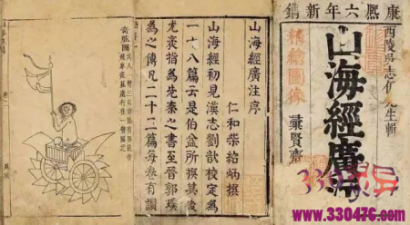 康熙六年新鐫
西陵吳志伊先生輯
山海經廣注
繡繪圖像
彙賢齋
山海經廣注序
仁和柴紹炳撰
山海經初見漢志劉歆校定為
一十八篇云是伯益所撰其後
尤袤指為先秦之書至晉郭璞
為之傳凡二十三篇每卷有讚
奇肱國
www.330476.com